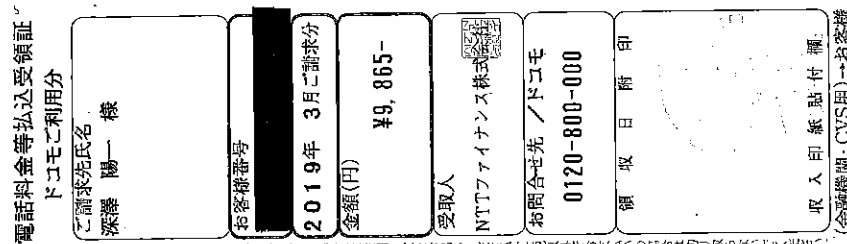 電話料金等払込受領証
ドコモご利用分
ご請求先氏名
深澤 陽一 様
お客様番号
2019年 3月ご請求分
金額(円)
¥9,865-
受取人
NTTファイナンス株式会社
お問合せ先 / ドコモ
0120-800-000
領収日附印
収入印紙貼付欄
金融機関・CVS用)→お客様